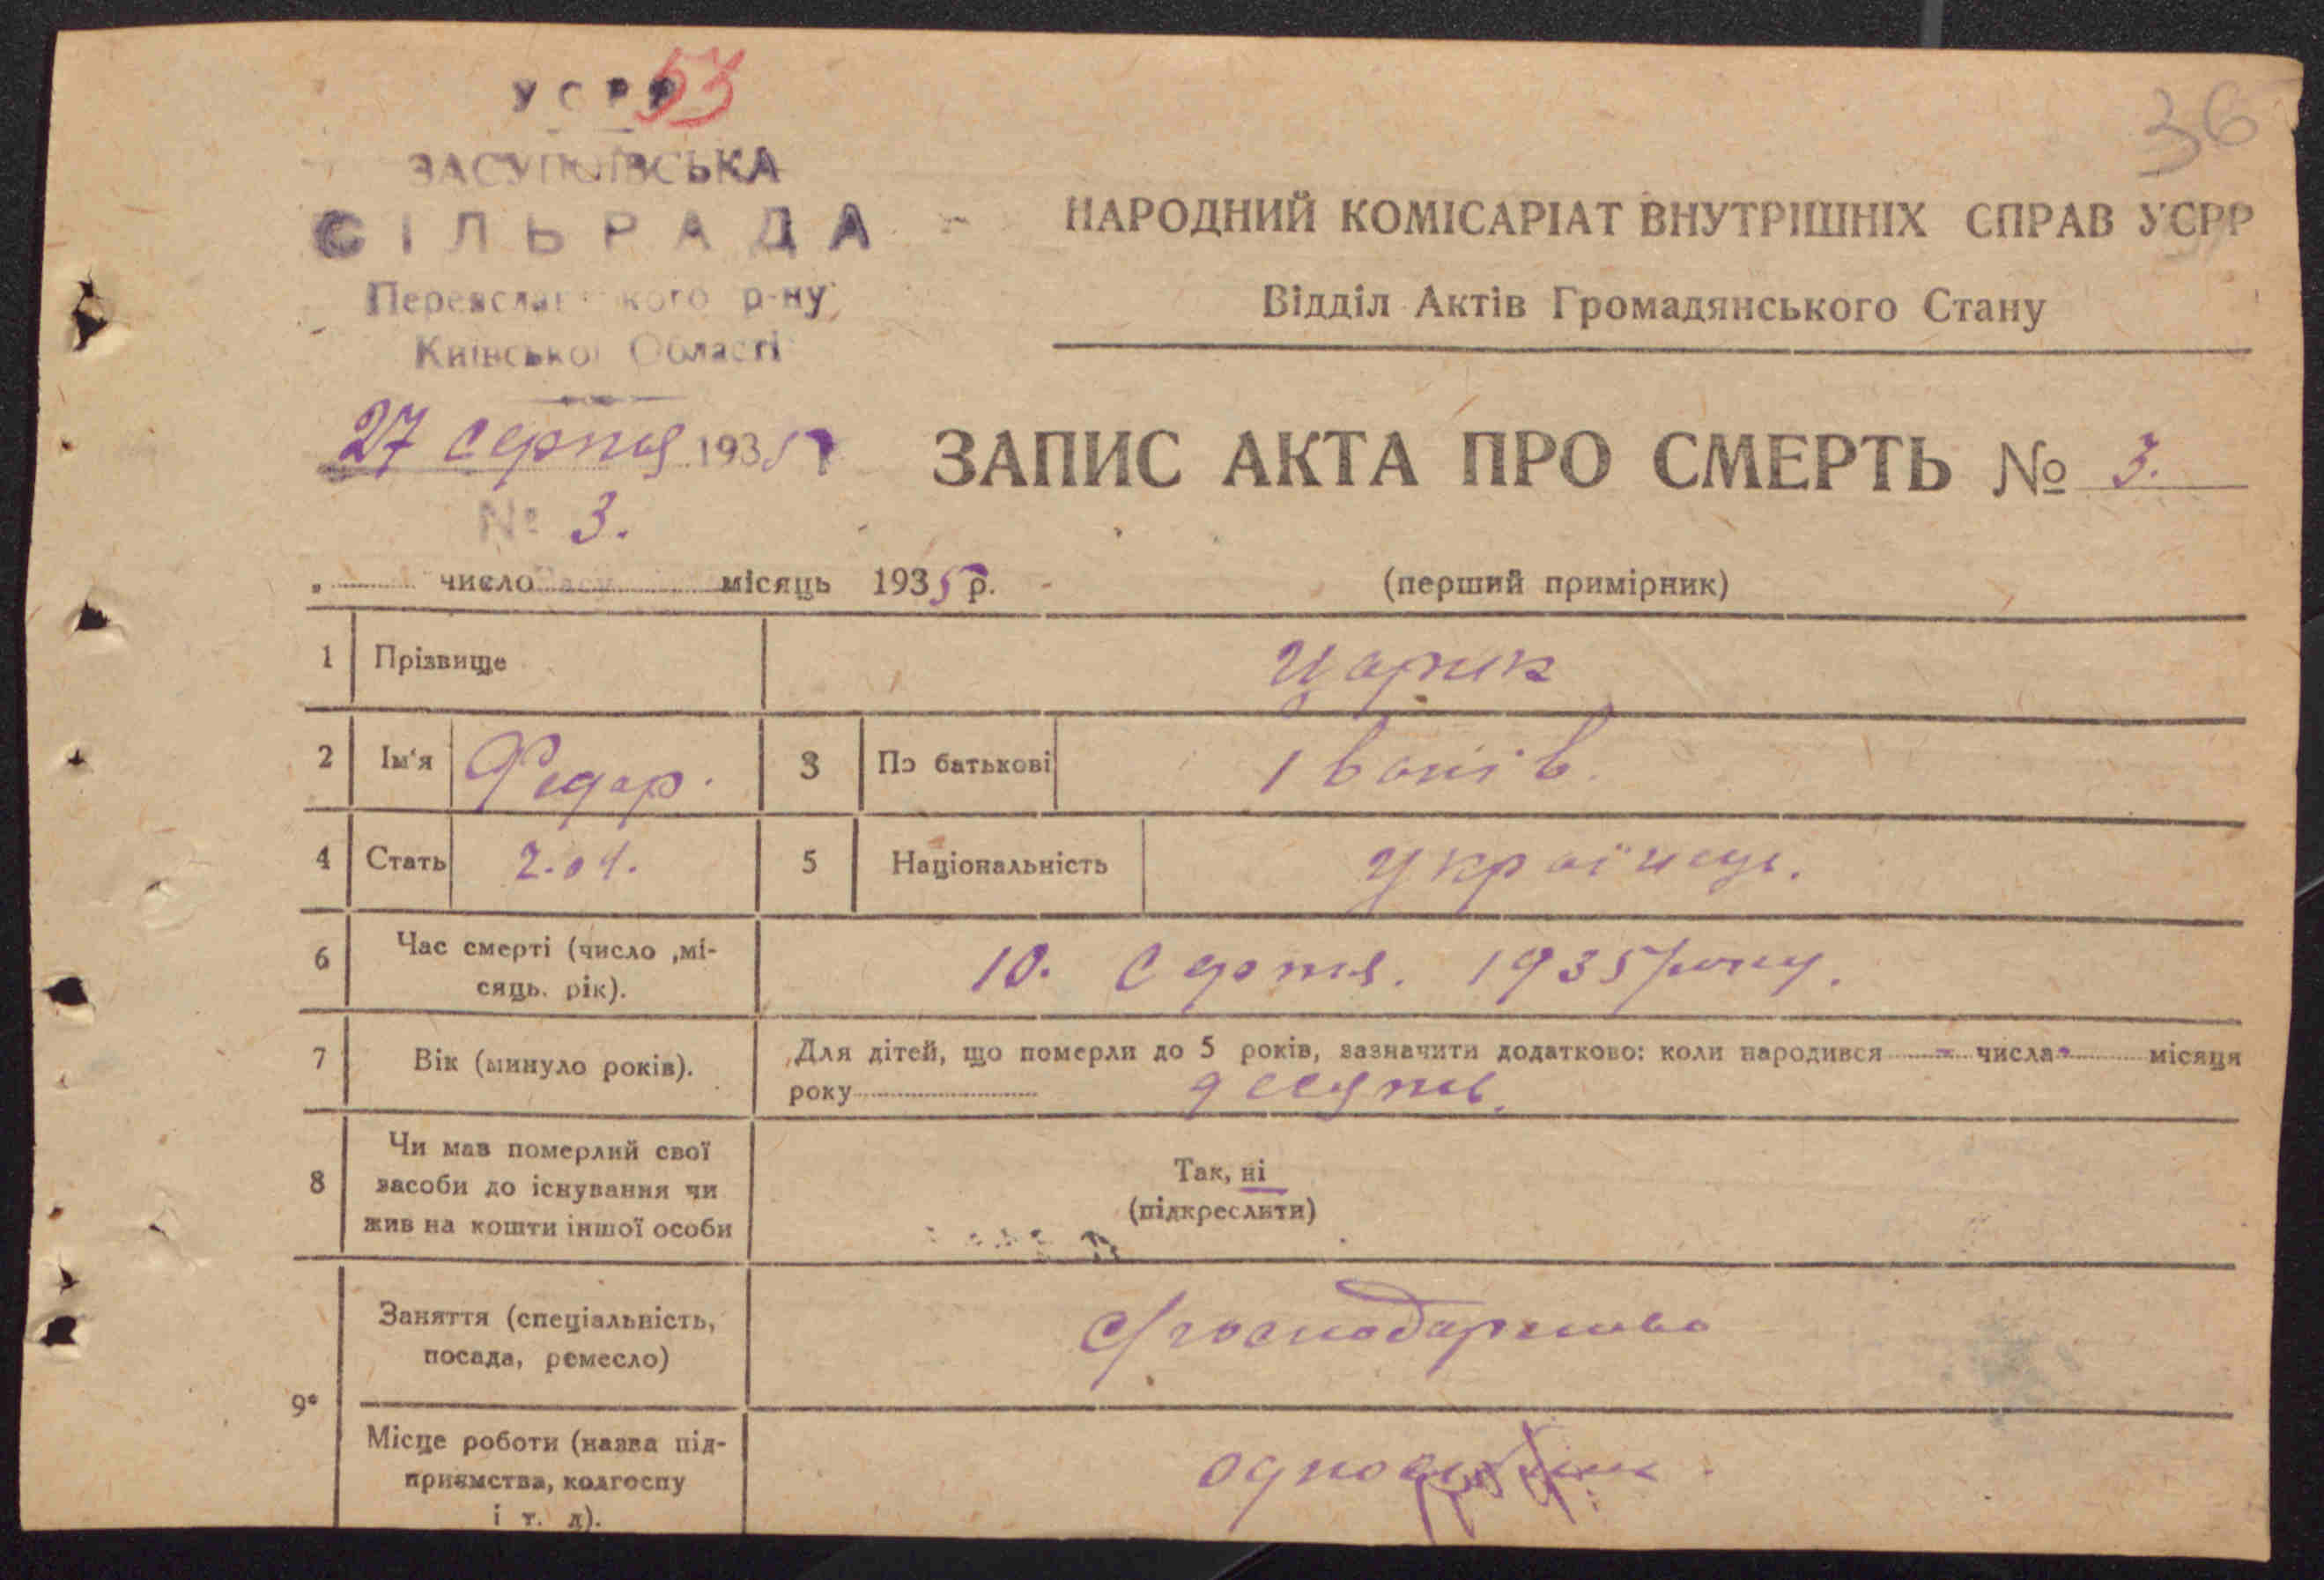 УСРР 53
36
ЗАСУПОЇВСЬКА
СІЛЬРАДА
Переяславського р-ну
Київської Області
НАРОДНИЙ КОМІСАРІАТ ВНУТРІШНІХ СПРАВ УСРР
Відділ Актів Громадянського Стану
27 серпня 1935
№ 3.
ЗАПИС АКТА ПРО СМЕРТЬ № 3.
„ число місяць 1935 р. (перший примірник)
1 Прізвище Царик
2 Ім'я Федар. 3 По батькові Іванів.
4 Стать 2. ол. 5 Національність Українець.
6 Час смерті (число ,мі-
сяць. рік). 10. Серпня. 1935 року.
7 Вік (минуло років). Для дітей, що померли до 5 років, зазначити додатково: коли народився числа місяця
року
8 Чи мав померлий свої
засоби до існування чи
жив на кошти іншої особи
Так, ні
(підкреслити)
9* Заняття (спеціальність,
посада, ремесло) с/господарство
Місце роботи (назва під-
приємства, колгоспу
і т. д).